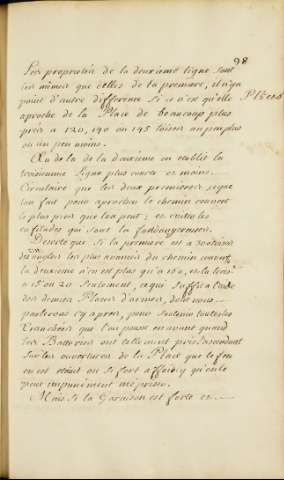 98
Les propriétés de la deuxième ligne sont
les mêmes que celles de la première, il n'y a
point d'autre différence si ce n'est qu'elle
aproche de la Place de beaucoup plus
près a 120, 140 ou 145 toises un peu plus
ou un peu moins.
Au dela de la deuxieme on etablit la
troisieme ligne plus courte et moins
Circulaire que les deux premieres, ce que
lon fait pour aprocher le chemin couvert
le plus près que lon peut; et eviter les
enfilades qui sont la fort dangereuses.
De sorte que si la premiere est a
angles les plus avancés du chemin couvert
la deuxieme n'en est plus qu'a et la trois.
a 15 ou 20 seulement, ce qui suffit a l'aide
des demies Places d'armes, dont nous
parlerons cy après, pour soutenir toutes les
tranchées que l'on pousse en avant quand
les Batteries ont tellement pris l'ascendant
sur les ouvertures de la Place que le feu
en est eteint ou si fort affoibly qu'on le
peut impunément mépriser.
Mais si la Garnison est forte et